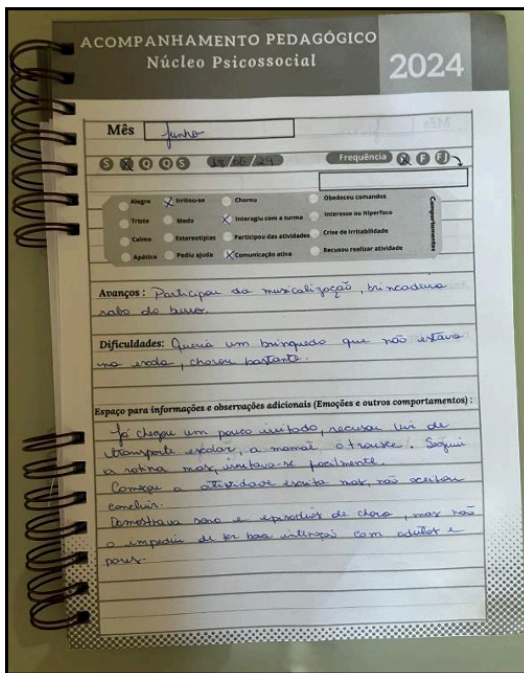 ACOMPANHAMENTO PEDAGÓGICO
Núcleo Psicossocial
2024
Mês Junho
S Q Q S 18/06/24 Frequência F FJ
Alegre Irritou-se Chorou Obedeceu comandos
Triste Medo Interagiu com a turma Interesse ou Hiperfoco
Calmo Estereotipias Participou das atividades Crise de Irritabilidade
Apático Pediu ajuda Comunicação ativa Recusou realizar atividade
Comportamentos
Avanços: Participou da musicalização, brincadeira
rabo do burro.
Dificuldades: Queria um brinquedo que não estava
na escola, chorou bastante.
Espaço para informações e observações adicionais (Emoções e outros comportamentos) :
Já chegou um pouco irritado, recusou vir de
transporte escolar, a mamãe o trouxe. Seguiu
a rotina mas, irritava-se facilmente.
Começou a atividade escrita mas, não aceitou
concluir.
Demostrava sono e episódios de choro, mas não
o impediu de ter boa interação com adultos e
pares.